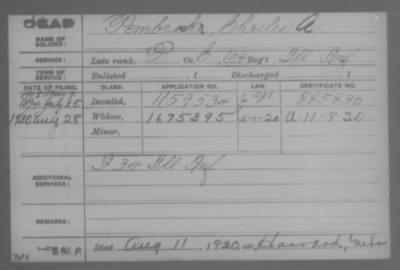 DEAD
NAME OF SOLDIER: Pembrooke, Charles A
SERVICE: Late rank, P Co. E, 104 Reg't Ill Inf
TERM OF SERVICE: Enlisted , 1 Discharged , 1
DATE OF FILING. CLASS. APPLICATION NO. LAW. CERTIFICATE NO.
July 25 Invalid, 1159534 885830
1920 Aug 28 Widow, 1675395 5-1-20 A-11-8-30
Minor,
ADDITIONAL SERVICES: D 34 Ill Inf
REMARKS:
Died Aug 11, 1920 at Harvard, Nebr